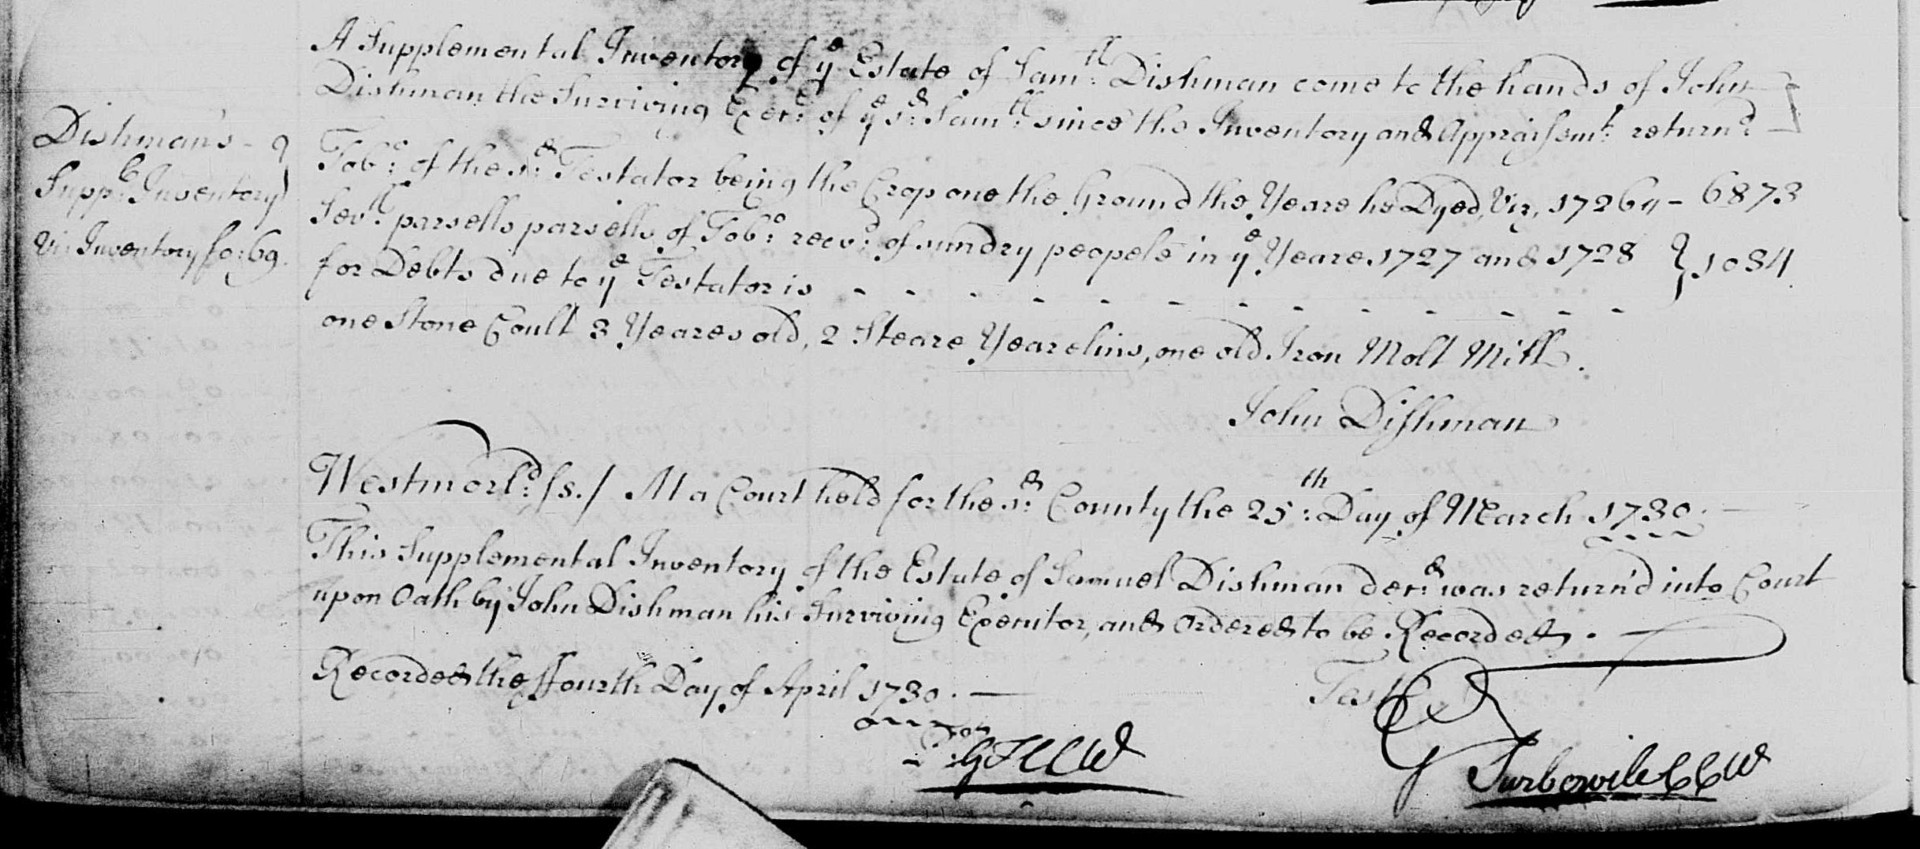 Dishman's
Suppl: Inventory
Vi: Inventory fo: 69.
A Supplemental Inventory of ye Estate of Samll: Dishman come to the hands of John
Dishman the Surviving Exer: of ye sd: Samll: since the Inventory and Appraisemt: return'd
Tobo: of the sd: Testator being the Crop one the Ground the Yeare he Dyed, Viz, 1726 - 6873
Sevll: parsells parsells of Tobo: recvd: of sundry peopele in ye Yeare 1727 and 1728 } 1084
for Debts due to ye Testator is - - - - - - - - - - - -
one Stone Coult 3 Yeares old, 2 Steare Yearelins, one old Iron Molt Mill.
John Dishman
Westmorld: ss./ At a Court held for the sd: County the 25th: Day of March 1730.
This Supplemental Inventory of the Estate of Samuel Dishman decd: was return'd into Court
upon Oath by John Dishman his Surviving Executor, and Ordered to be Recorded.
Recorded the ffourth Day of April 1730.
Test
G Turbervile CCW
GTCCW